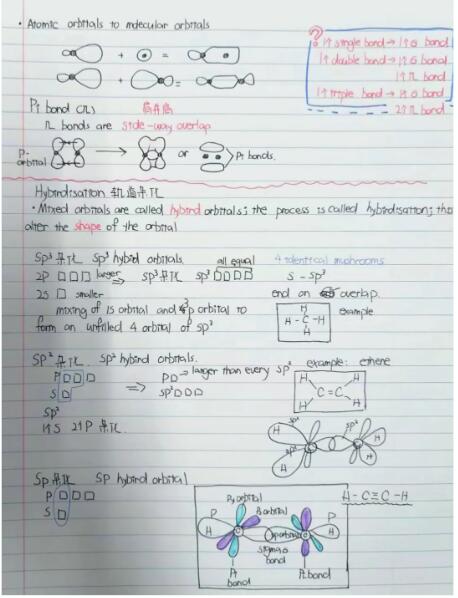 • Atomic orbitals to molecular orbitals
?
1个 single bond → 1个 σ bond
1个 double bond → 1个 σ bond
1个 π bond
1个 triple bond → 1个 σ bond
2个 π bond
+ =
+ =
Pi bond (π) 肩并肩
π bonds are side-way overlap
P-orbital → or > Pi bonds.
Hybridisation 轨道杂化
• Mixed orbitals are called hybrid orbitals; the process is called hybridisation; this
alter the shape of the orbital
SP³杂化 SP³ hybid orbitals. all equal 4 identical mushrooms
2P larger ⇒ SP³杂化 SP³ S - SP³
2S smaller end on overlap.
mixing of 1S orbital and 3p orbital to
form an unfilled 4 orbital of SP³
H
H - C - H
H
example
SP²杂化. SP² hybind orbitals.
P ⇒ P → larger than every SP² example: ethene
S SP²
H H
C = C
H H
SP²
1个S 2个P 杂化.
H SP² C C H
H SP² H
SP杂化 SP hybind orbital
P
S
H - C ≡ C - H
Py orbital
P P orbital P
H C sp orbital C H
sigma σ
bond
Pi
bond
Pi bond